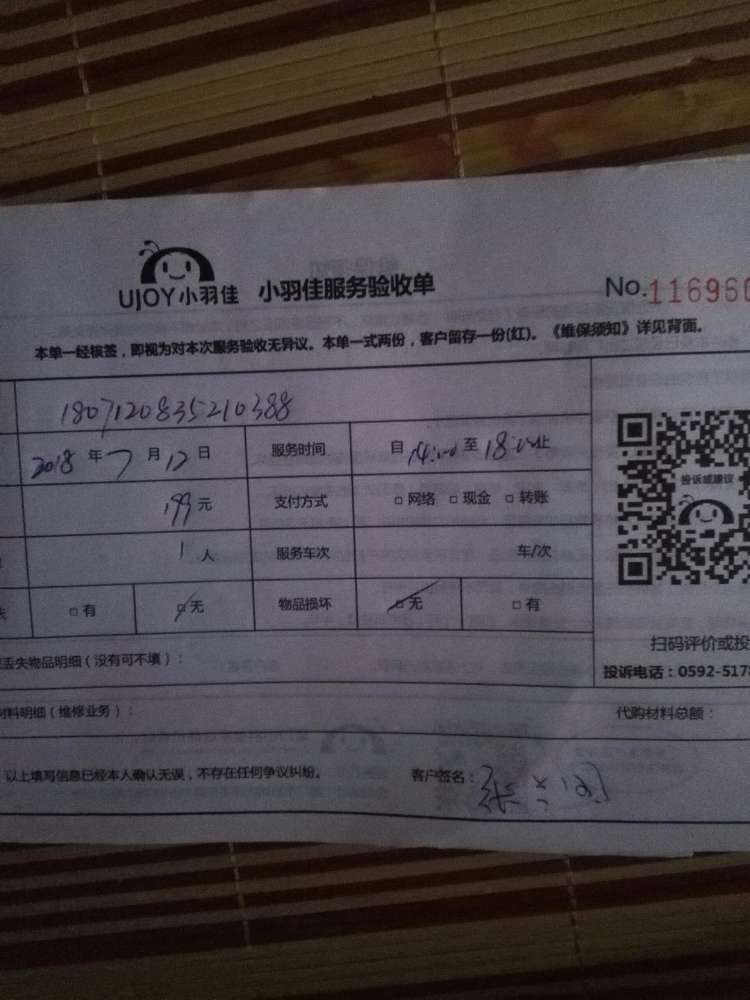 UJOY小羽佳 小羽佳服务验收单 No.116960
本单一经核签，即视为对本次服务验收无异议。本单一式两份，客户留存一份(红)。《维保须知》详见背面。
1807120835210388
2018年7月12日 服务时间 自14:00至18:00止
199元 支付方式 □网络 □现金 □转账
1人 服务车次 车/次
失 □有 □无 物品损坏 □无 □有
投诉或建议
扫码评价或投
丢失物品明细（没有可不填）：
投诉电话：0592-5178
材料明细（维修业务）： 代购材料总额：
以上填写信息已经本人确认无误，不存在任何争议纠纷。 客户签名：